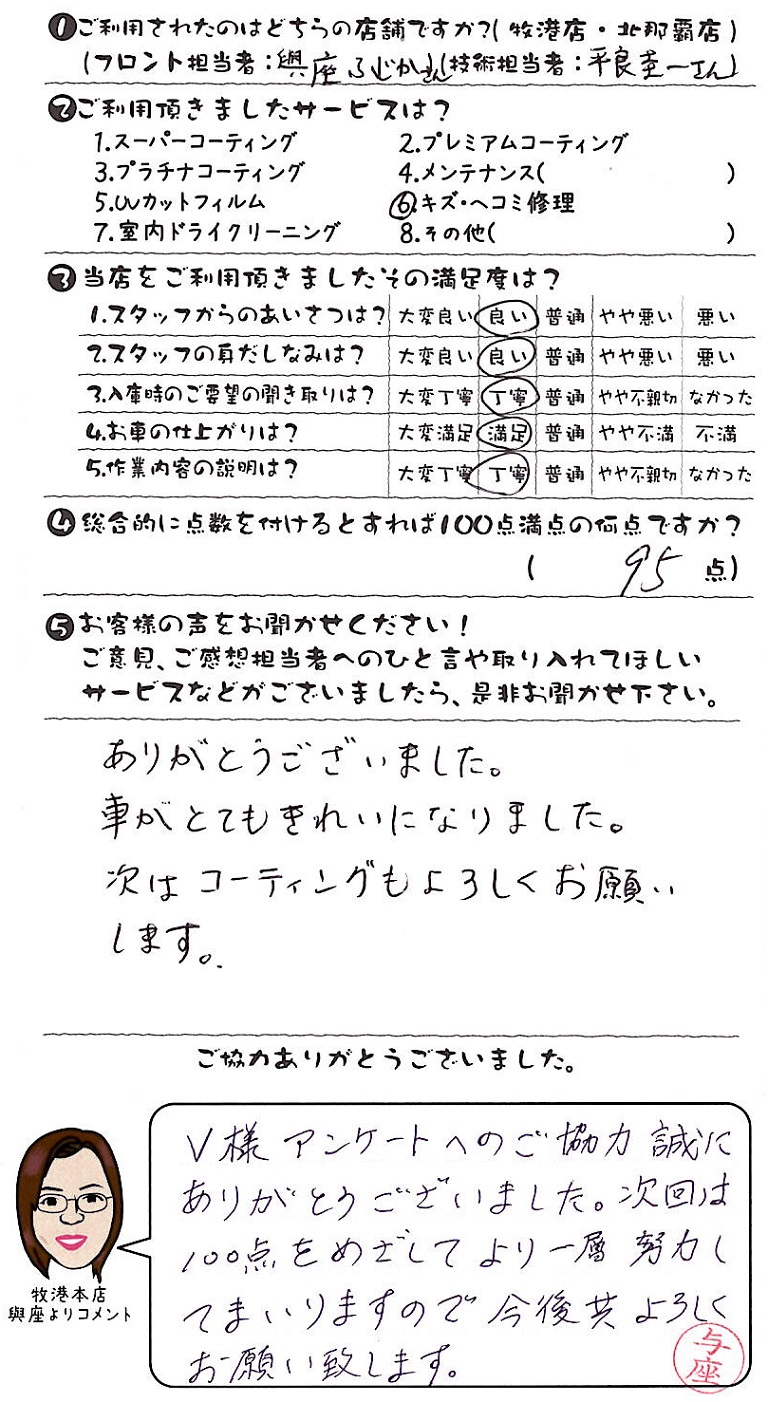 ❶ご利用されたのはどちらの店舗ですか?(牧港店・北那覇店)
(フロント担当者:與座ふじかさん(技術担当者:平良圭一さん)
❷ご利用頂きましたサービスは?
1.スーパーコーティング 2.プレミアムコーティング
3.プラチナコーティング 4.メンテナンス( )
5.UVカットフィルム 6.キズ・ヘコミ修理
7.室内ドライクリーニング 8.その他( )
❸当店をご利用頂きましたその満足度は?
1.スタッフからのあいさつは? 大変良い 良い 普通 やや悪い 悪い
2.スタッフの身だしなみは? 大変良い 良い 普通 やや悪い 悪い
3.入庫時のご要望の聞き取りは? 大変丁寧 丁寧 普通 やや不親切 なかった
4.お車の仕上がりは? 大変満足 満足 普通 やや不満 不満
5.作業内容の説明は? 大変丁寧 丁寧 普通 やや不親切 なかった
❹総合的に点数を付けるとすれば100点満点の何点ですか?
( 95 点)
❺お客様の声をお聞かせください!
ご意見、ご感想担当者へのひと言や取り入れてほしい
サービスなどがございましたら、是非お聞かせ下さい。
ありがとうございました。
車がとてもきれいになりました。
次はコーティングもよろしくお願い
します。
ご協力ありがとうございました。
V様 アンケートへのご協力 誠に
ありがとうございました。次回は
100点をめざしてより一層 努力し
てまいりますので 今後共 よろしく
お願い致します。
与座
牧港本店
與座よりコメント